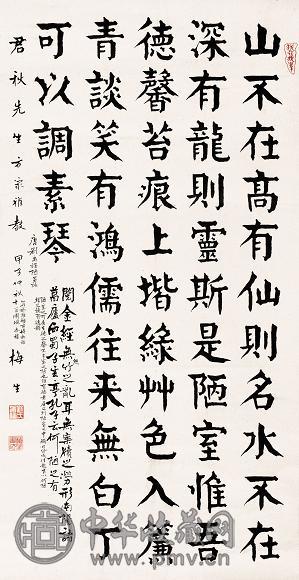 山不在髙有仙則名水不在
深有龍則靈斯是陋室惟吾
德馨苔痕上堦綠艸色入簾
青談笑有鴻儒往来無白丁
可以調素琴
閱金經無竹之亂耳無案牘之勞形南陽諸
葛廬西蜀子雲亭孔子云何陋之有
君秋先生方家雅教
甲子仲秋
梅生
中华收藏网
www.pmv.cn